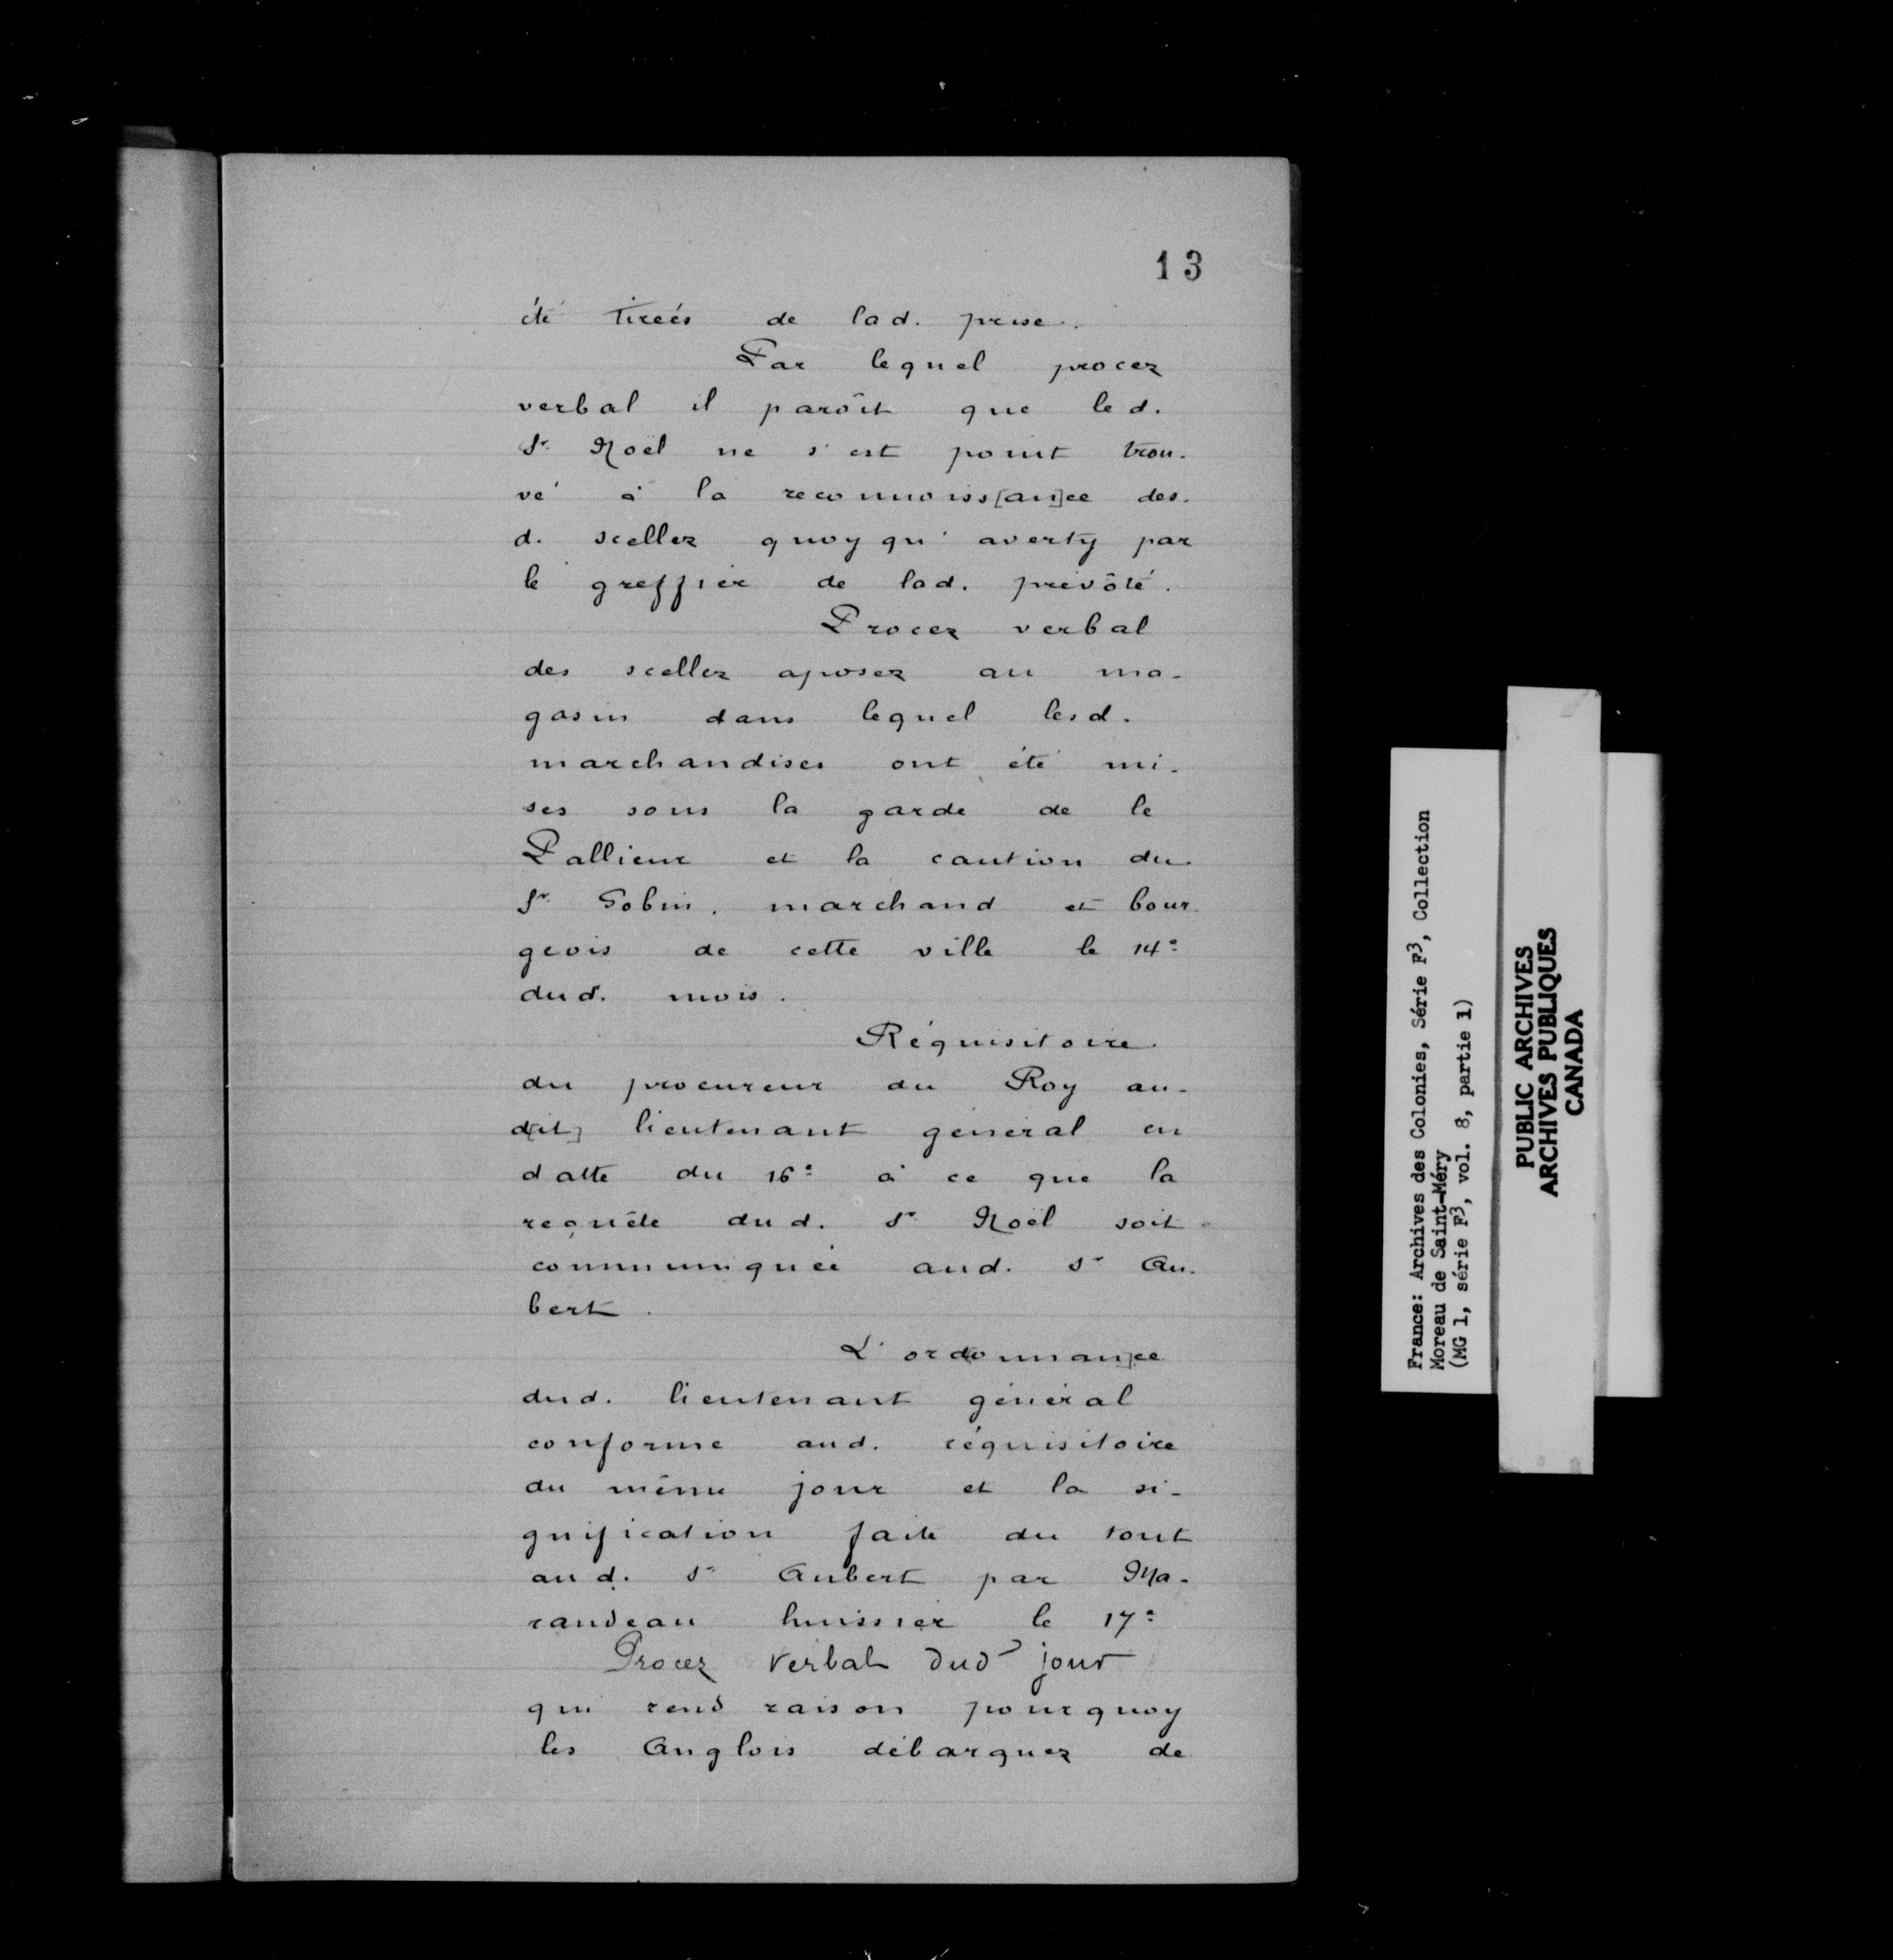 13
été tireés de lad. prise.
Par lequel procez
verbal il parôit que led.
Sr. Noël ne s'est point trou-
vé à la reconnoiss[an]ce des-
d. scellez quoy qu'averty par
le greffier de lad. prévôté.
Procez verbal
des scellez aposez au ma-
gasin dans lequel lesd.
marchandises ont été mi-
ses sous la garde de le
Pallieur et la caution du
Sr. Gobin, marchand et bour-
geois de cette ville le 14e
dud. mois.
Réquisitoire
du procureur du Roy au-
d[it] lieutenant général en
datte du 16e à ce que la
requête dud. Sr Noël soit
communiquée aud. Sr Au-
bert.
L'ordonnance
dud. lieutenant général
conforme aud. réquisitoire
du même jour et la si-
gnification faite du tout
aud. Sr Aubert par Ma-
randeau huissier le 17e
Procez verbal dud jour
qui rend raison pourquoy
les Anglois débarquez de
France: Archives des Colonies, Série F3, Collection
Moreau de Saint-Méry
(MG 1, série F3, vol. 8, partie 1)
PUBLIC ARCHIVES
ARCHIVES PUBLIQUES
CANADA